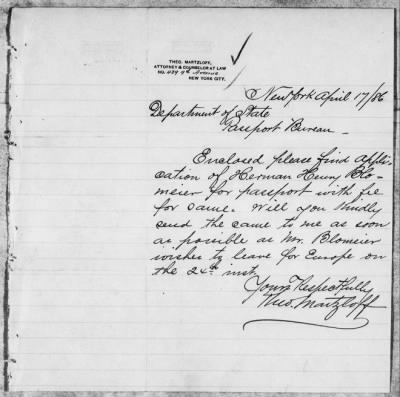 THEO. MARTZLOFF,
ATTORNEY & COUNSELOR AT LAW
NO. 439 9th Avenue
NEW YORK CITY.
New York April 17/86
Department of State
Passport Bureau
Enclosed please find appli-
cation of Herman Henry Blo-
meier for passport with fee
for same. Will you kindly
send the same to me as soon
as possible as Mr. Blomeier
wishes to leave for Europe on
the 24th inst.
Yours Respectfully
Theo. Martzloff